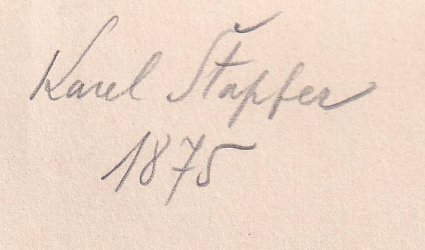 Karel Štapfer
1875